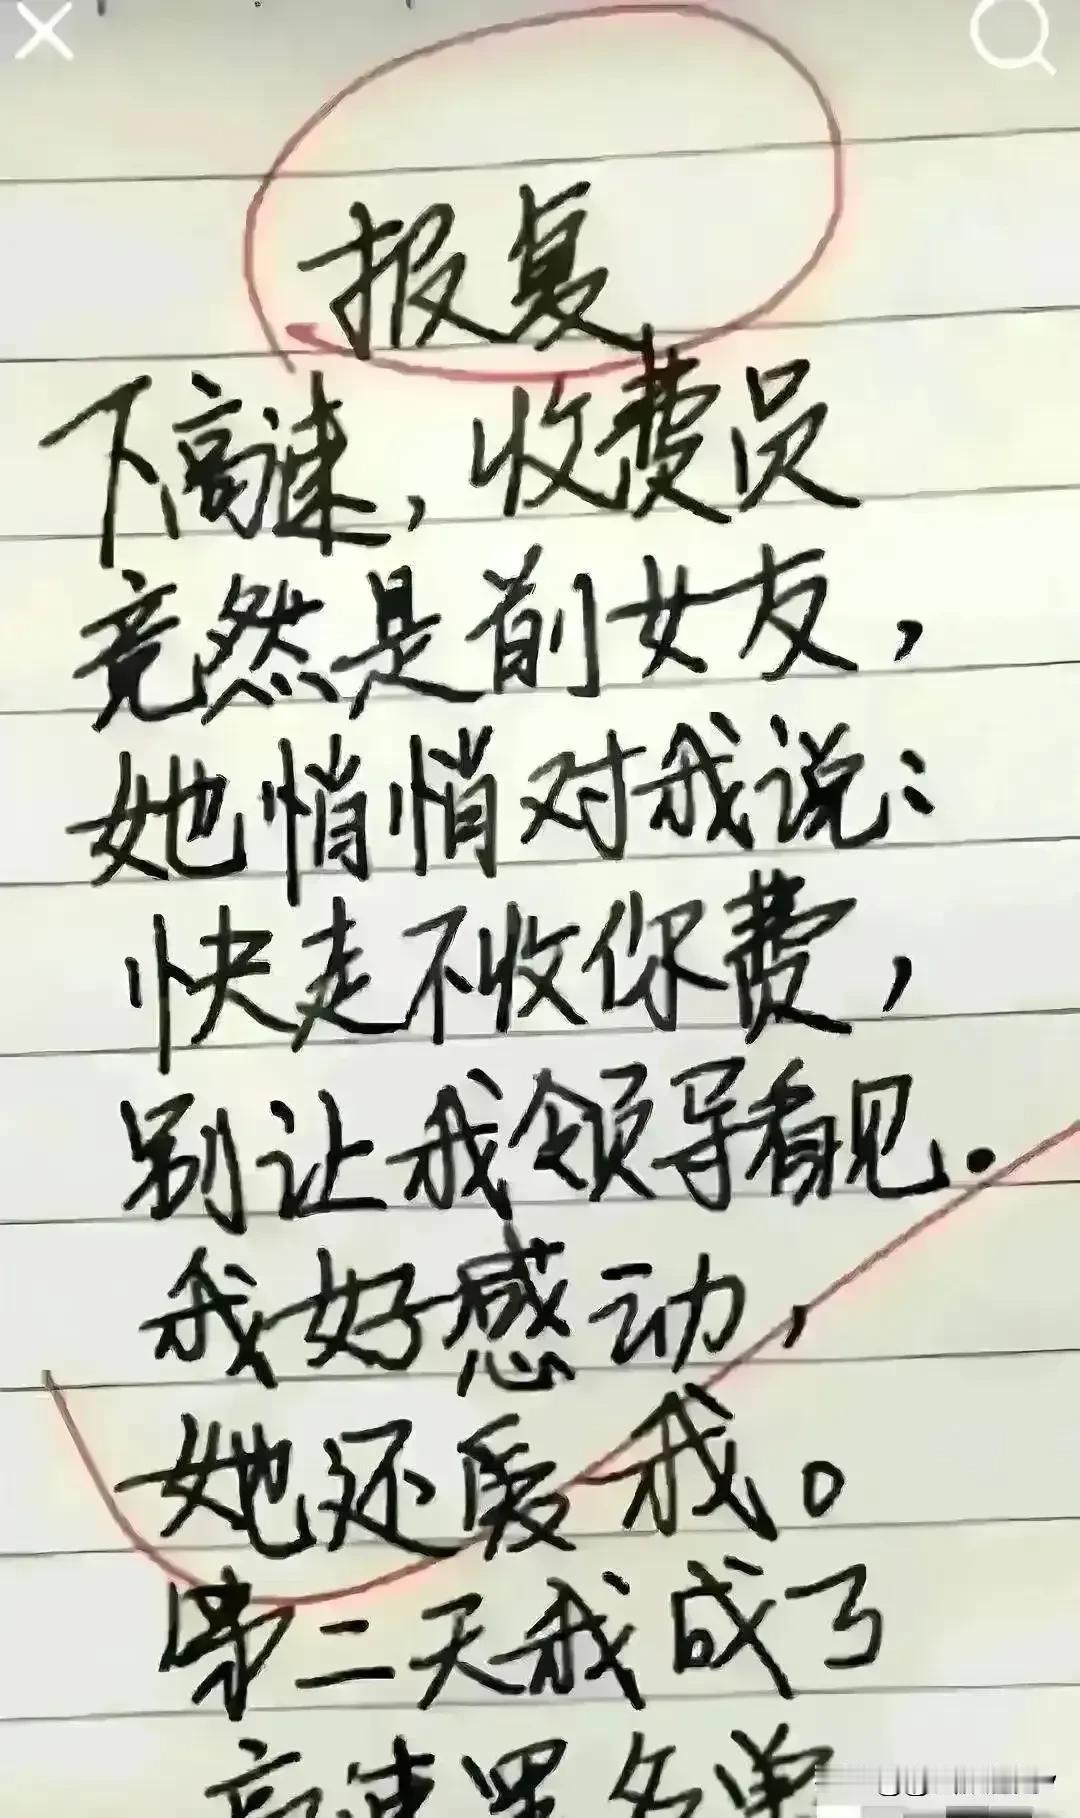 报复
下高速，收费员
竟然是前女友，
她悄悄对我说：
快走不收你费，
别让我领导看见.
我好感动，
她还爱我。
第二天我成了
高速黑名单